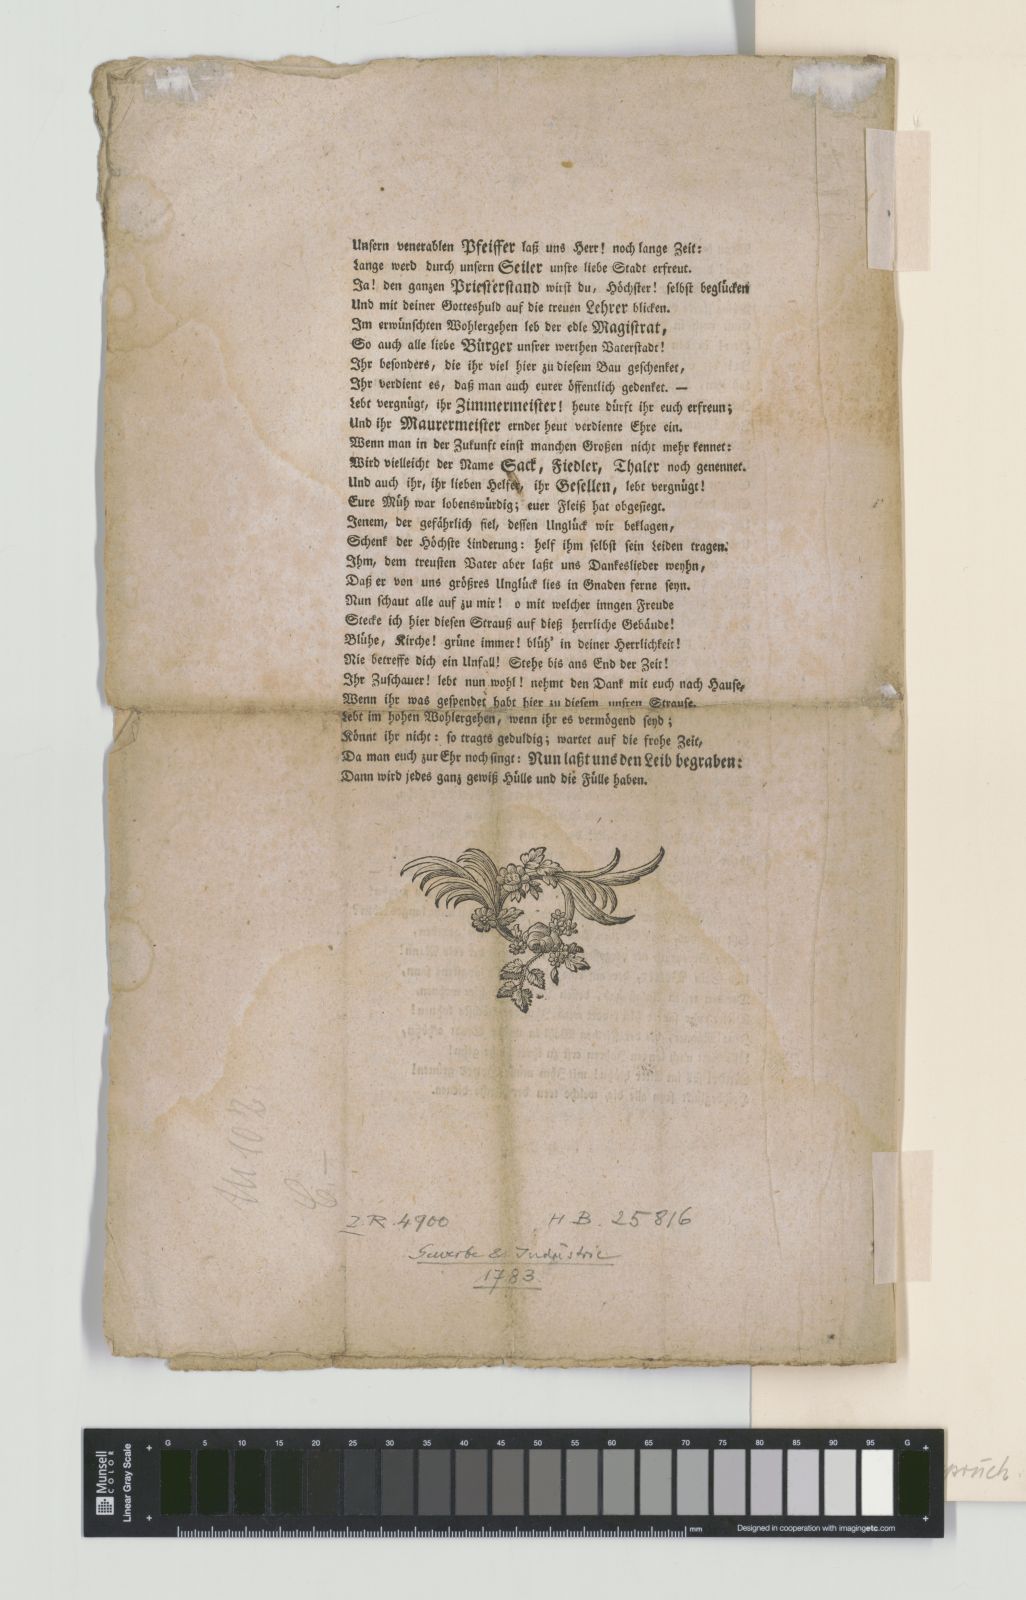 Unsern venerablen Pfeiffer laß uns Herr! noch lange Zeit:
Lange werd durch unsern Seiler unsre liebe Stadt erfreut.
Ja! den ganzen Priesterstand wirst du, Höchster! selbst beglücken
Und mit deiner Gotteshuld auf die treuen Lehrer blicken.
Im erwünschten Wohlergehen leb der edle Magistrat,
So auch alle liebe Bürger unsrer werthen Vaterstadt!
Ihr besonders, die ihr viel hier zu diesem Bau geschenket,
Ihr verdient es, daß man auch eurer öffentlich gedenket. —
Lebt vergnügt, ihr Zimmermeister! heute dürft ihr euch erfreun;
Und ihr Maurermeister erndet heut verdiente Ehre ein.
Wenn man in der Zukunft einst manchen Großen nicht mehr kennet:
Wird vielleicht der Name Sack, Fiedler, Thaler noch genennet.
Und auch ihr, ihr lieben Helfer, ihr Gesellen, lebt vergnügt!
Eure Müh war lobenswürdig; euer Fleiß hat obgesiegt.
Jenem, der gefährlich fiel, dessen Unglück wir beklagen,
Schenk der Höchste Linderung: helf ihm selbst sein Leiden tragen.
Ihm, dem treusten Vater aber laßt uns Dankeslieder weyhn,
Daß er von uns größres Unglück lies in Gnaden ferne seyn.
Nun schaut alle auf zu mir! o mit welcher inngen Freude
Stecke ich hier diesen Strauß auf dieß herrliche Gebäude!
Blühe, Kirche! grüne immer! blüh' in deiner Herrlichkeit!
Nie betreffe dich ein Unfall! Stehe bis ans End der Zeit!
Ihr Zuschauer! lebt nun wohl! nehmt den Dank mit euch nach Hause,
Wenn ihr was gespendet habt hier zu diesem unsren Strause.
Lebt im hohen Wohlergehen, wenn ihr es vermögend seyd;
Könnt ihr nicht: so tragts geduldig; wartet auf die frohe Zeit,
Da man euch zur Ehr noch singt: Nun laßt uns den Leib begraben:
Dann wird jedes ganz gewiß Hülle und die Fülle haben.
Z.R. 4900 H.B. 25816
Gewerbe & Industrie
1783.
Munsell COLOR Linear Gray Scale
G 5 10 15 20 25 30 35 40 45 50 55 60 65 70 75 80 85 90 95 G
mm Designed in cooperation with imagingetc.com